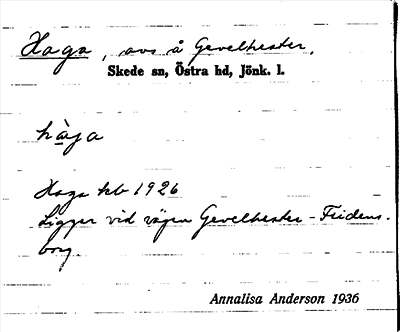 Haga, avs å Gevelhester,
Skede sn, Östra hd, Jönk. l.
hàga
Haga kb 1926
Ligger vid vägen Gevelhester - Fridens-
borg.
Annalisa Anderson 1936